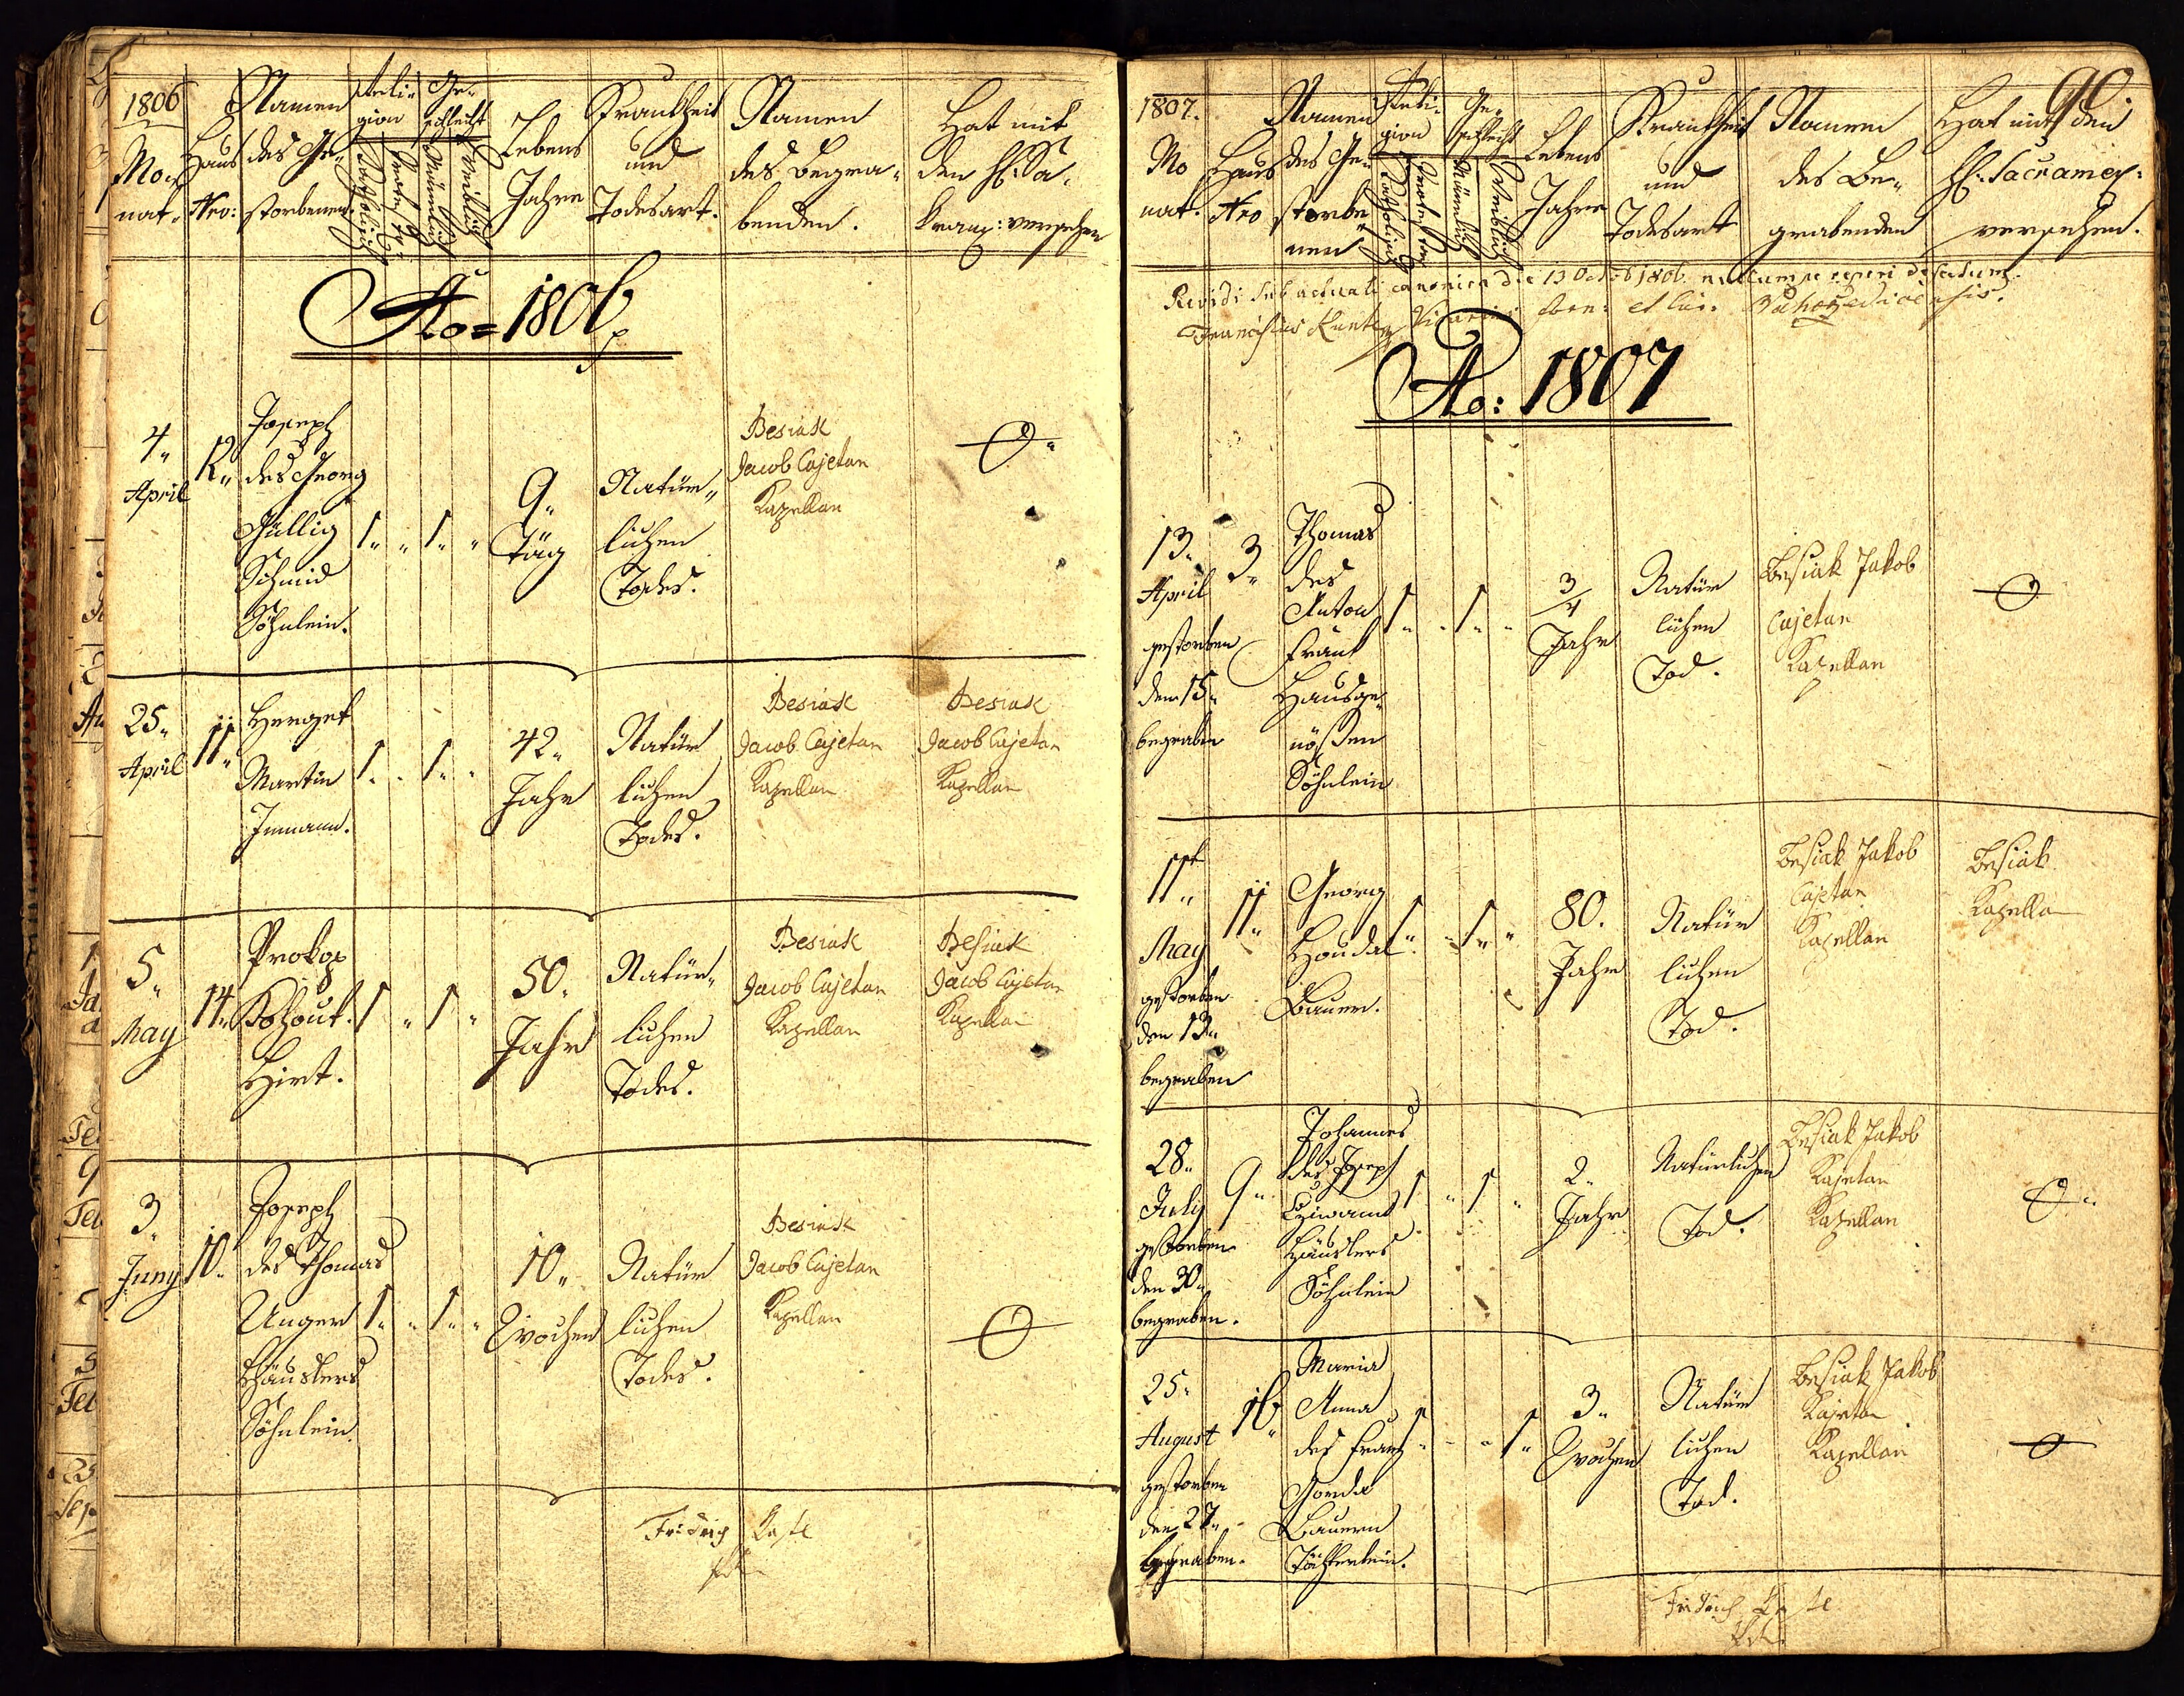 1806
Monat.
Haus Nro:
Namen des Gestorbenen.
Religion
Katholisch
Protestan.
Geschlecht
Männlich
Weiblich
Lebens Jahre
Krankheit und Todesart.
Namen des Begrabenden.
Hat mit den hl: Sakram: versehen
Ao = 1806
4. April
12.
Joseph
des Georg
Gällig
Schmid
Söhnlein.
1. " 1. "
9.
Täg
Natür-
lichen
Todes.
Besiak
Jacob Cajetan
Kapellan
O
25. April
11.
Herget
Martin
Inmann.
1. " 1. "
42.
Jahr
Natür
lichen
Todes.
Besiak
Jacob Cajetan
Kapellan
Besiak
Jacob Cajetan
Kapellan
5. May
14.
Prokop
Kohout.
Hirt.
1 " 1 "
50.
Jahr
Natür-
lichen
Todes.
Besiak
Jacob Cajetan
Kapellan
Besiak
Jacob Cajetan
Kapellan
3. Juny
10.
Joseph
des Thomas
Unger
Häuslers
Söhnlein.
1. " 1. "
10.
Wochen
Natür
lichen
Todes.
Besiak
Jacob Cajetan
Kapellan
O
Fridrich
90.
1807.
Monat.
Haus Nro
Namen des Gestorbenen
Religion
Katholisch
Protestan
Geschlecht
Männlich
Weiblich
Lebens Jahre
Krankheit und Todesart
Namen des Begrabenden
Hat mit den hl: Sacramen: versehen.
Revidi sub actuali canonica die 13 Octob 1806
Franciscus Vicarius foran:
Ao: 1807
13. April
gestorben
den 15.
begraben
3.
Thomas
des
Anton
Frank
Hausge-
nossen
Söhnlein
1. " 1. "
3/4
Jahr
Natür
lichen
Tod.
Besiak Jakob
Cajetan
Kapellan
O
11t
May
gestorben
den 13.
begraben
11.
Georg
Houdal.
Bauer.
1. " 1. "
80.
Jahr
Natür
lichen
Tod.
Besiak Jakob
Cajetan
Kapellan
Besiak
Kapellan
28.
July
gestorben
den 30.
begraben.
9.
Johannes
des Joseph
Häuslers
Söhnlein
1 " 1 "
2.
Jahr
Natürlichen
Tod.
Besiak Jakob
Kajetan
Kapellan
O
25.
August
gestorben
den 27.
begraben.
16.
Maria
Anna
des Franz
Bauern
Töchterlein.
1. " " 1.
3.
Wochen
Natür
lichen
Tod.
Besiak Jakob
Kajetan
Kapellan
O
Fridrich